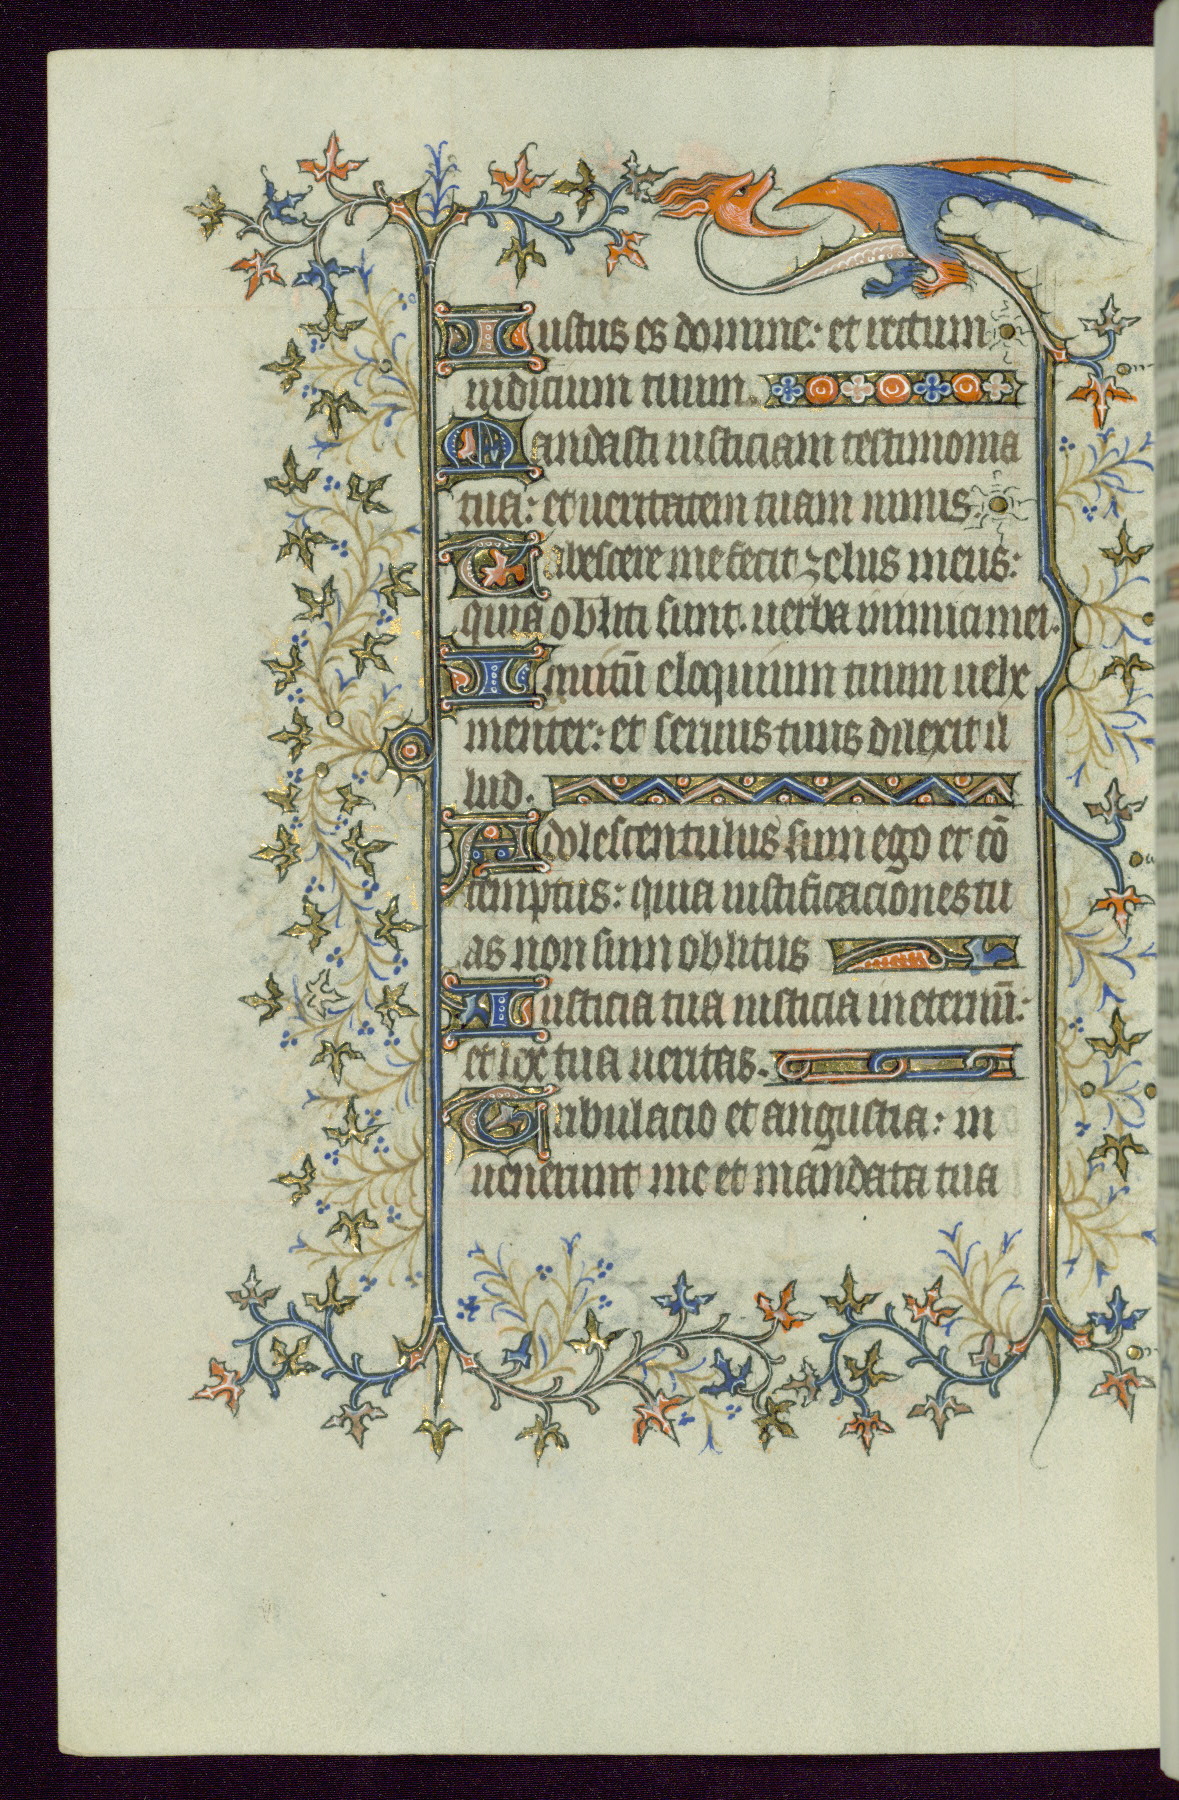 Iustus es domine: et rectum
iudicium tuum.
Mandasti iusticiam testimonia
tua: et ueritatem tuam nimis.
Tabescere me fecit zelus meus:
quia obliti sunt. uerba inimici mei.
Ignitū eloquium tuum uehe
menter: et seruus tuus dilexit il
lud.
Adolescentulus sum ego et cō
temptus: quia iustificaciones tu
as non sum oblitus
Iusticia tua iusticia in eternū:
et lex tua ueritas.
Tribulacio et angustia: in
uenerunt me et mandata tua